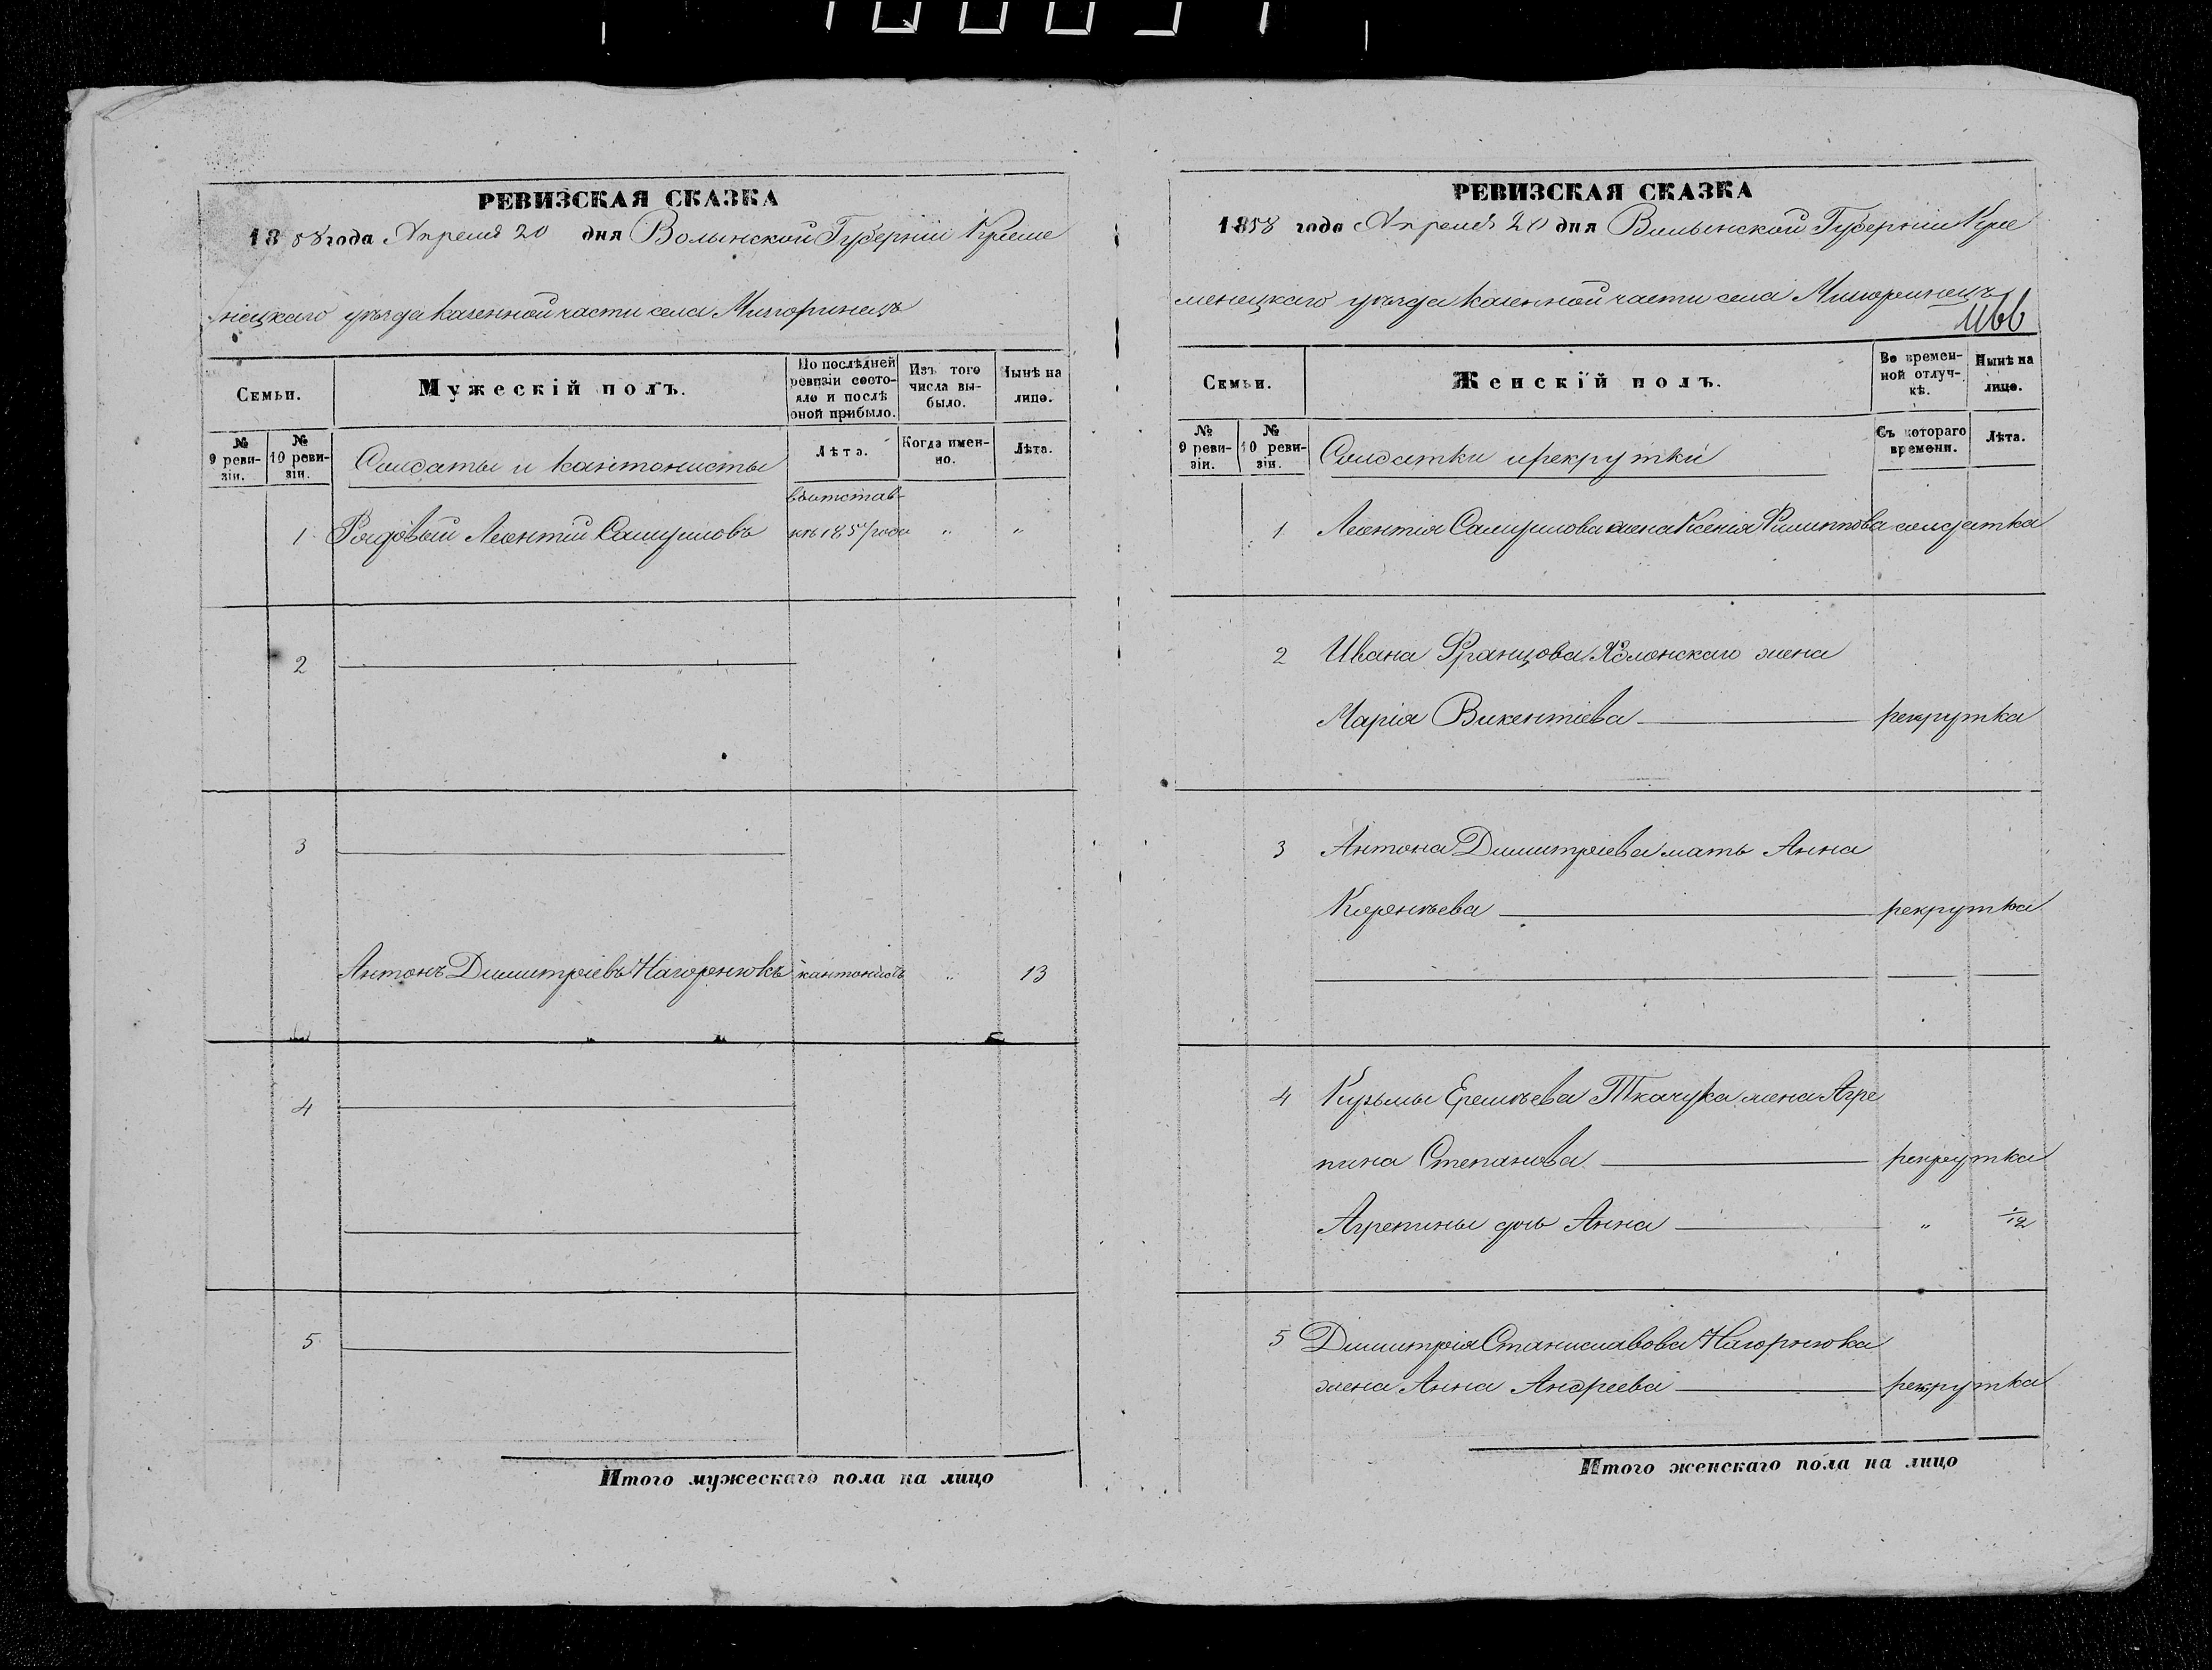 РЕВИЗСКАЯ СКАЗКА
1858 года Апреля 20 дня Волынской Губерніи Креме
нецкаго уѣзда казенной части села
Семьи.
Мужескій полъ.
По послѣдней ревизіи состояло и послѣ оной прибыло.
Изъ того числа выбыло.
Нынѣ на лицо.
№ 9 ревизіи.
№ 10 ревизіи.
Солдаты и кантонисты
Лѣта.
Когда именно.
Лѣта.
въ отстав-
1 Рядовый Леонтій Самуиловъ кѣ 1857 года " "
2
3
Антонъ Димитріевъ Нагорнюкъ кантонистъ " 13
4
5
Итого мужескаго пола на лицо
РЕВИЗСКАЯ СКАЗКА
1858 года Апреля 20 дня Волынской Губерніи Кре
менецкаго уѣзда казенной части села
Семьи.
Женскій полъ.
Во временной отлучкѣ.
Нынѣ на лицо.
№ 9 ревизіи.
№ 10 ревизіи.
Солдатки и рекрутки
Съ котораго времени.
Лѣта.
1 Леонтія Самуилова жена Ксенія Филиппова солдатка
2 Ивана Францова Яблонскаго жена
Марія Викентіева рекрутка
3 Антона Димитріева мать Анна
рекрутка
4 Кузьмы Еремѣева Ткачука жена Агре
пина Степанова рекрутка
Агрепины дочь Анна " 1/12
5 Димитрія Станиславова Нагорнюка
жена Анна Андреева рекрутка
Итого женскаго пола на лицо